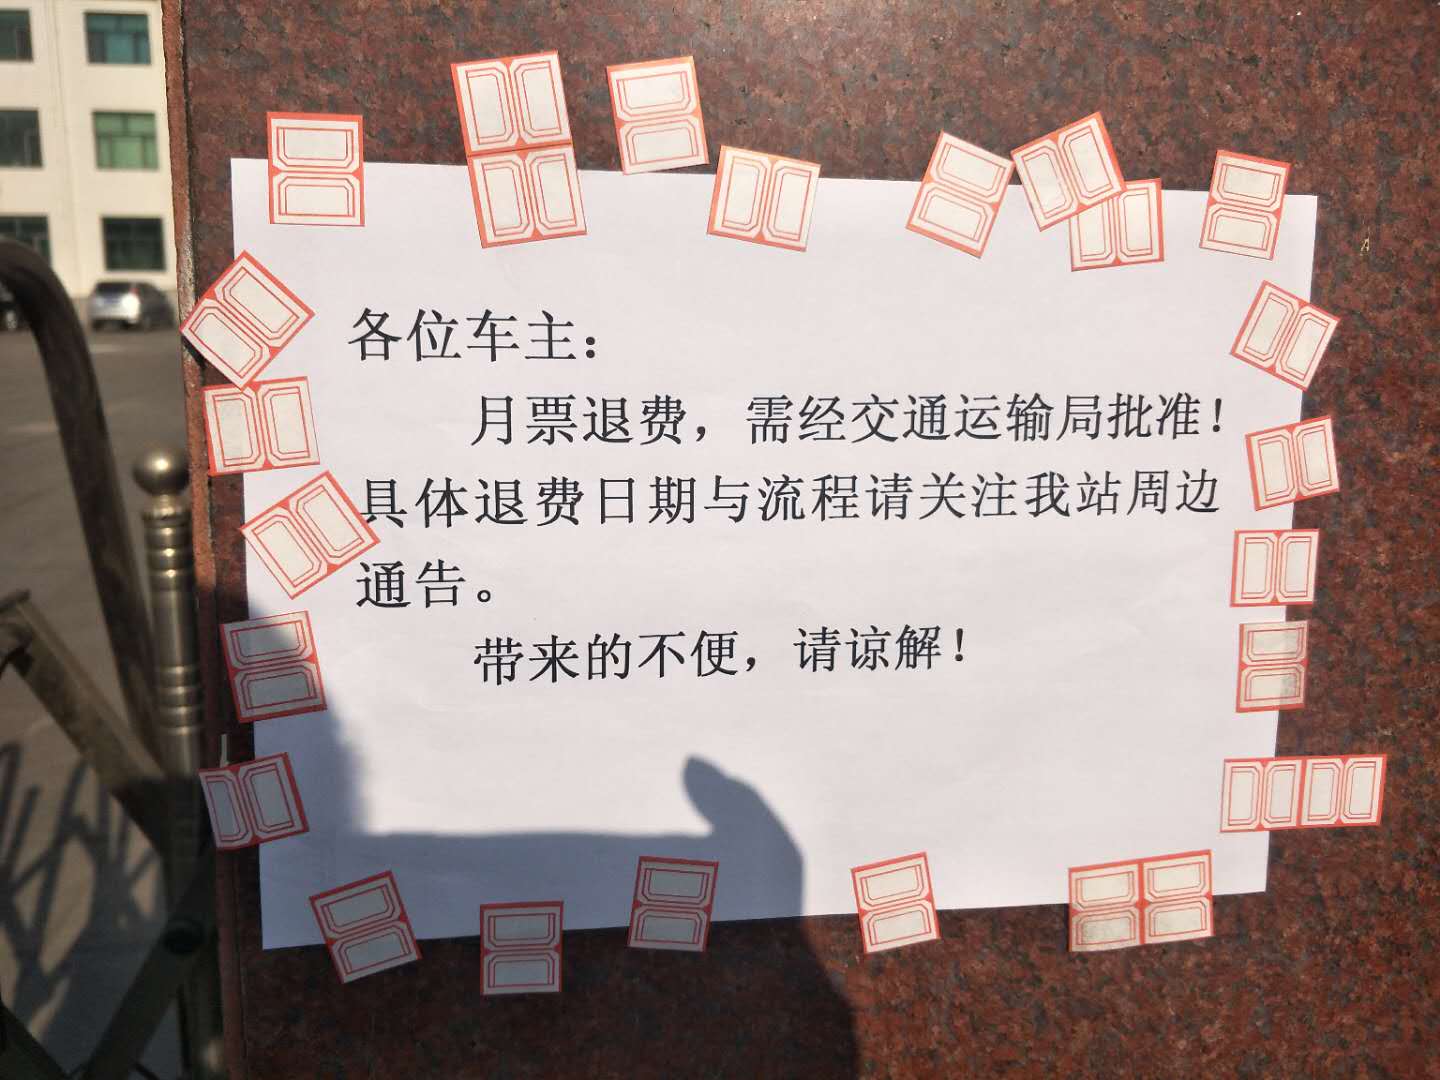 各位车主：
月票退费，需经交通运输局批准！
具体退费日期与流程请关注我站周边
通告。
带来的不便，请谅解！